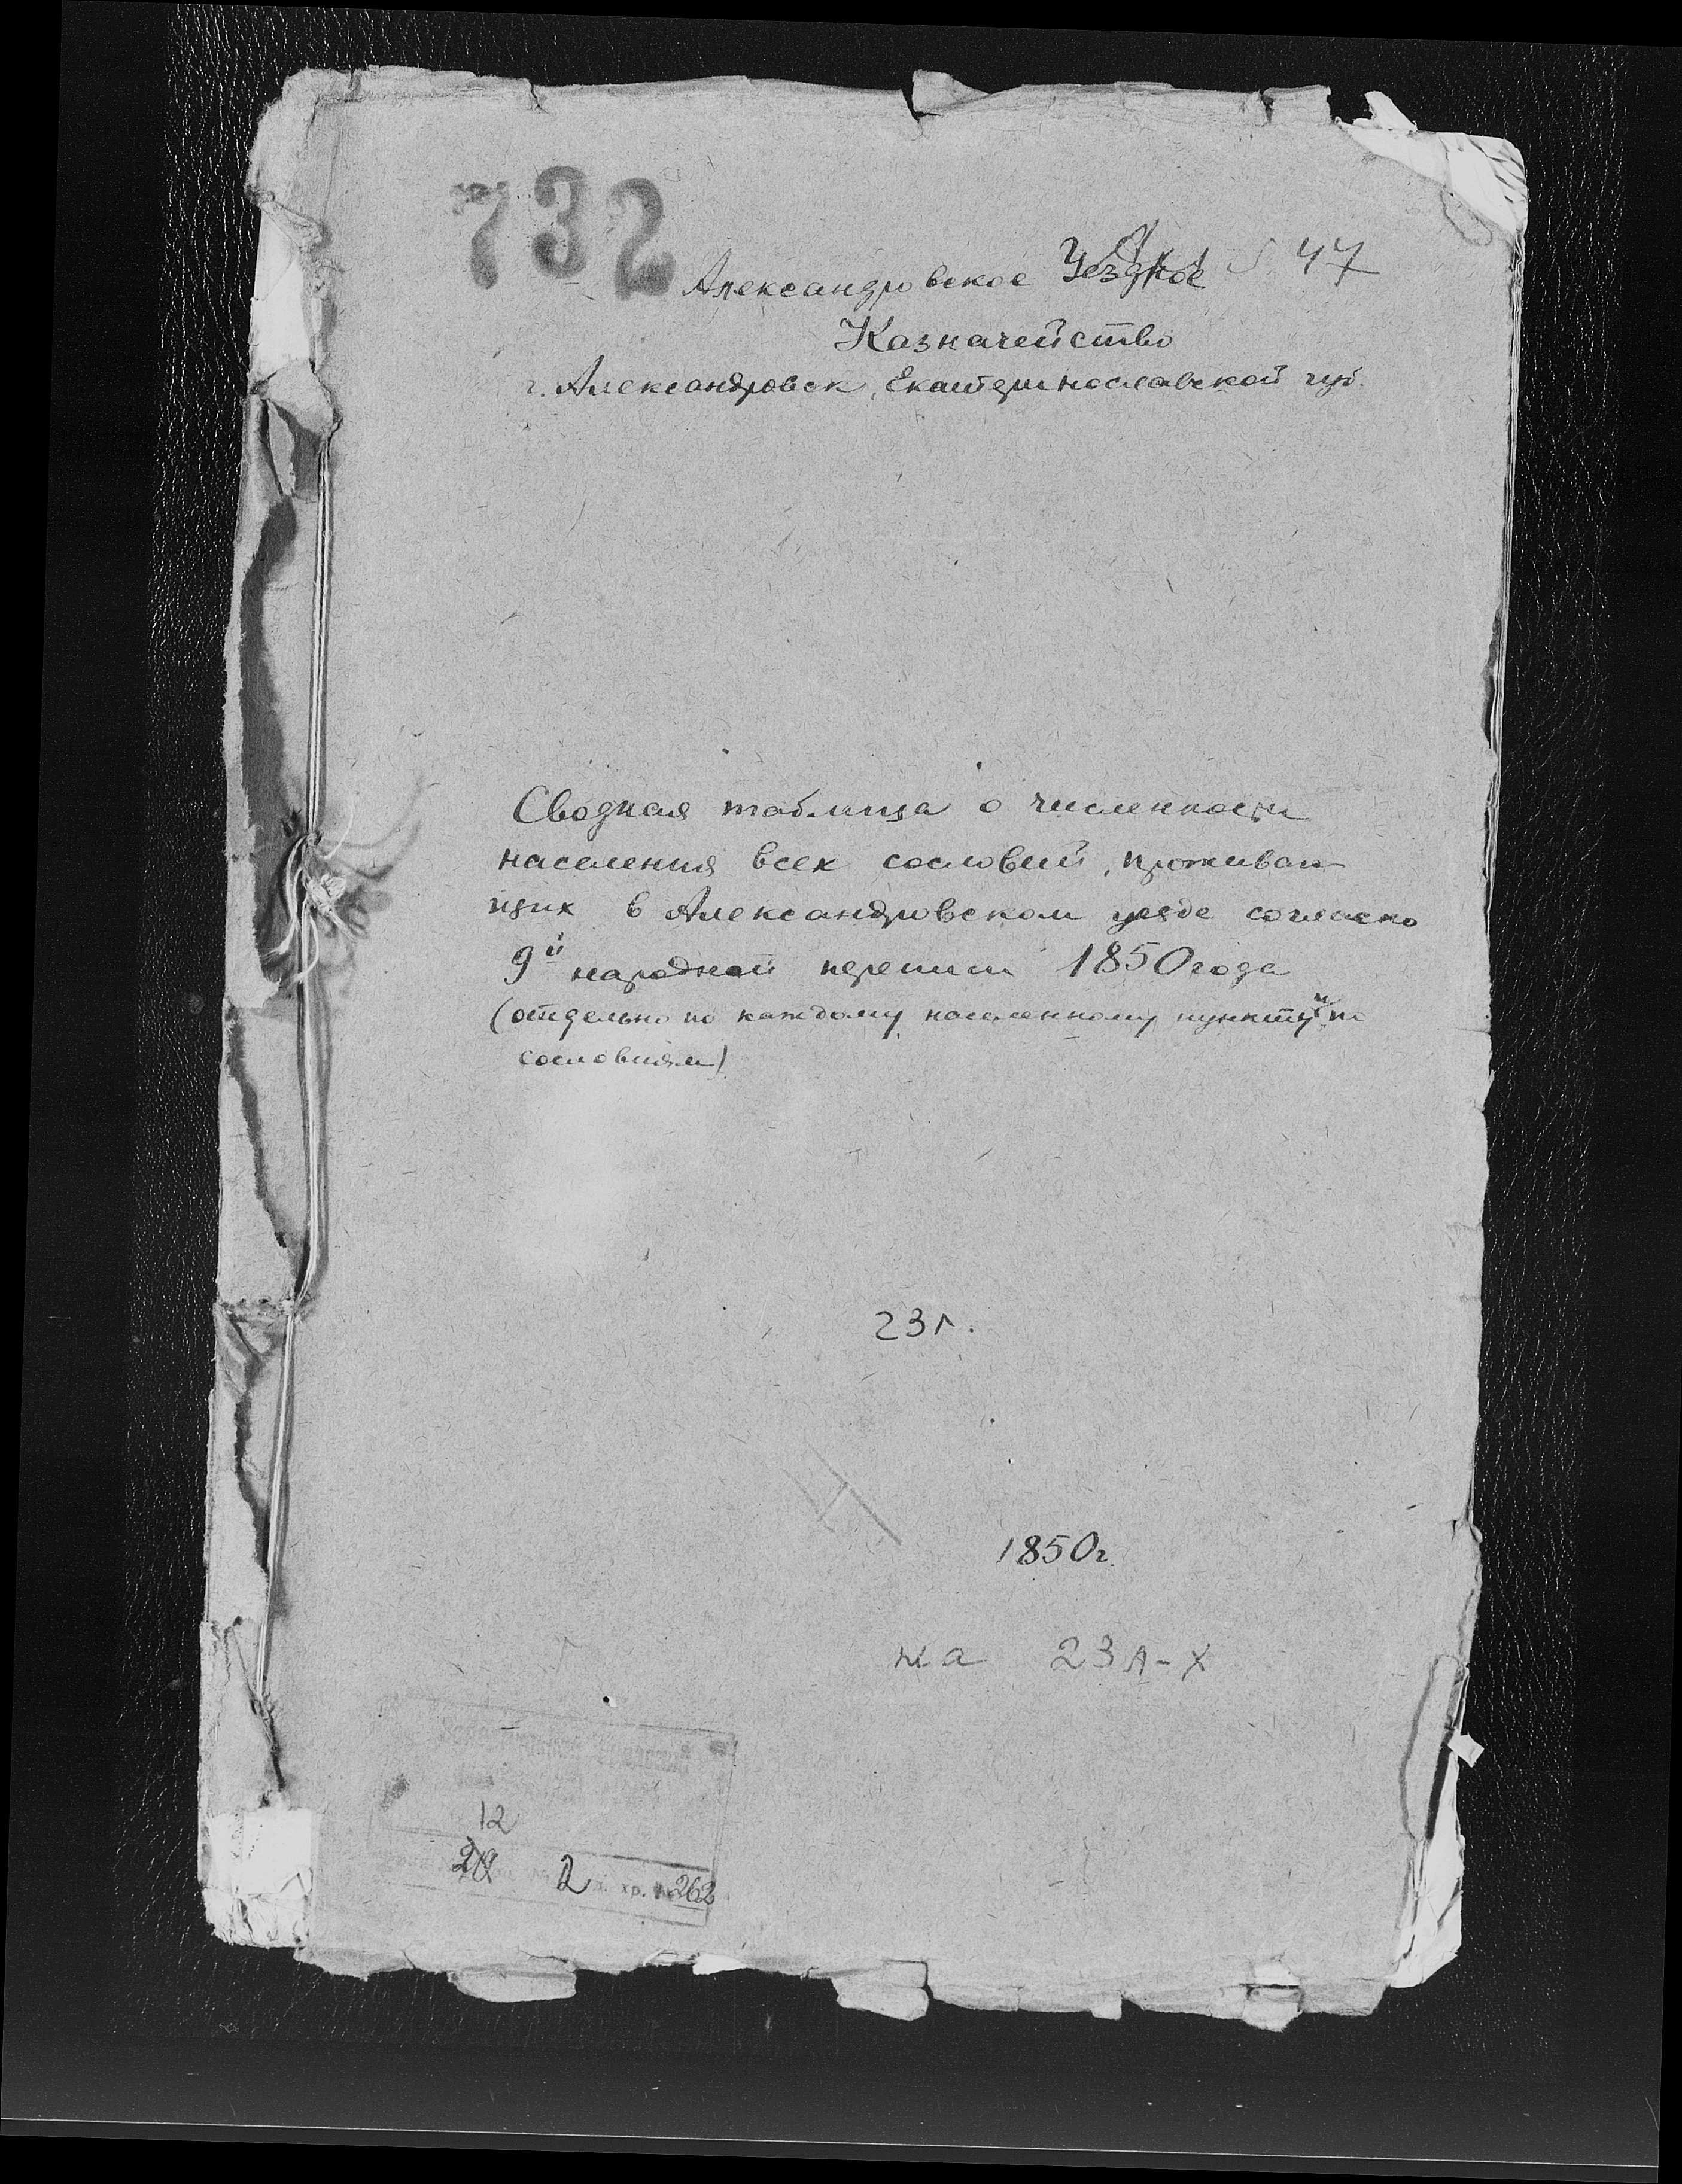 732
Александровское Уездное 47
Казначейство
г. Александровск, Екатеринославской губ.
Сводная таблица о численности
населения всех сословий, проживаю-
щих в Александровском уезде согласно
9й народной переписи 1850 года
(отдельно по каждому населенному пункту и по
сословиям)
23 л.
1850 г.
на 23 л-х
12
2 хр. 262